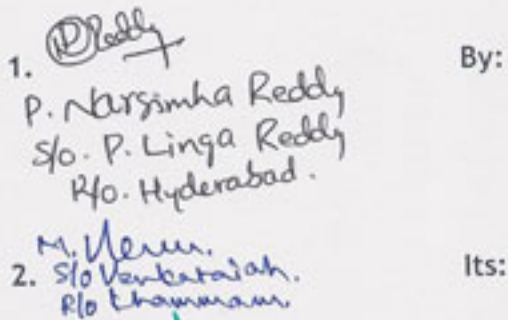 1. P Reddy
By:
P. Narsimha Reddy
S/o. P. Linga Reddy
R/o. Hyderabad.
M.
2. S/o Venkataiah.
Its:
R/o Khammam.